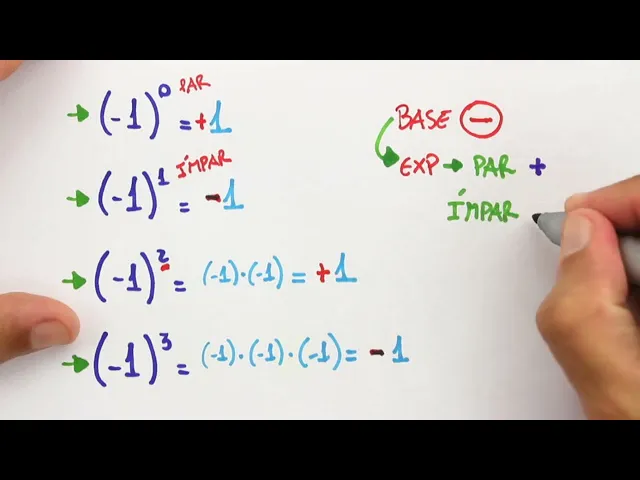 (-1)⁰ PAR = +1
(-1)¹ ÍMPAR = -1
(-1)² = (-1)·(-1) = +1
(-1)³ = (-1)·(-1)·(-1) = -1
BASE ⊖
EXP → PAR +
ÍMPAR